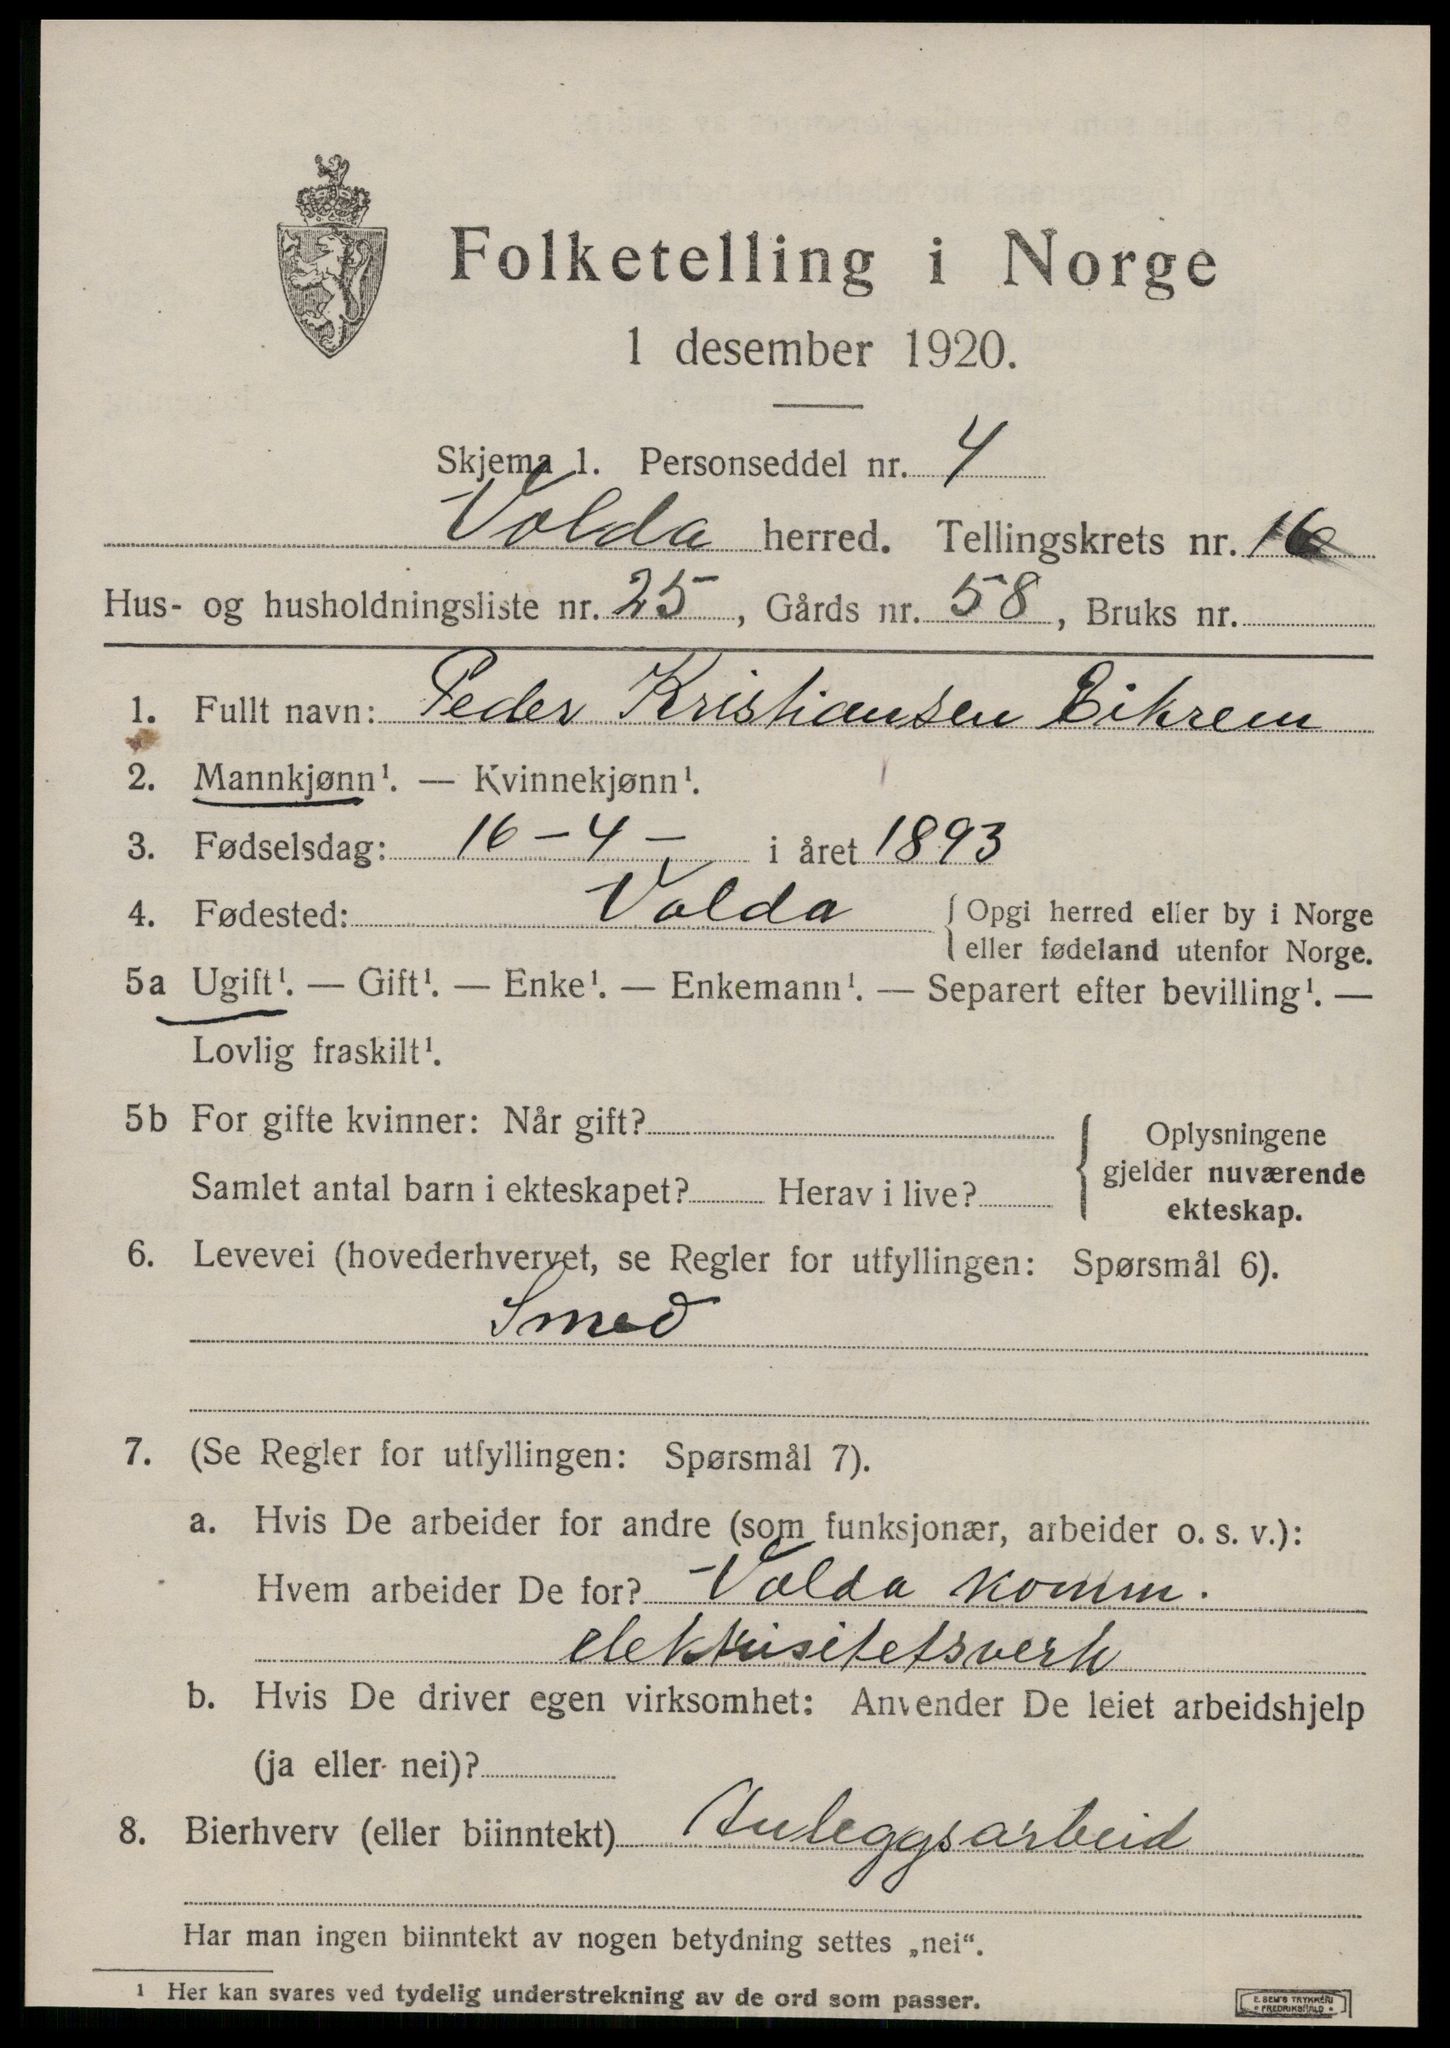 Folketelling i Norge
1 desember 1920.
Skjema 1. Personseddel nr. 4
Volda herred. Tellingskrets nr. 16
Hus- og husholdningsliste nr. 25, Gårds nr. 58, Bruks nr.
1. Fullt navn: Peder Kristiansen Eikrem
2. Mannkjønn¹. — Kvinnekjønn¹.
3. Fødselsdag: 16-4- i året 1893
4. Fødested: Volda {Opgi herred eller by i Norge
eller fødeland utenfor Norge.
5a Ugift¹. — Gift¹. — Enke¹. — Enkemann¹. — Separert efter bevilling¹. —
Lovlig fraskilt¹.
5b For gifte kvinner: Når gift?
Samlet antal barn i ekteskapet? Herav i live?
{Oplysningene
gjelder nuværende
ekteskap.
6. Levevei (hovederhvervet, se Regler for utfyllingen: Spørsmål 6).
Smed
7. (Se Regler for utfyllingen: Spørsmål 7).
a. Hvis De arbeider for andre (som funksjonær, arbeider o. s. v.):
Hvem arbeider De for? Volda komm.
elektrisitetsverk
b. Hvis De driver egen virksomhet: Anvender De leiet arbeidshjelp
(ja eller nei)?
8. Bierhverv (eller biinntekt) Anleggsarbeid
Har man ingen biinntekt av nogen betydning settes „nei“.
¹ Her kan svares ved tydelig understrekning av de ord som passer.
E. SEM'S TRYKKERI
• FREDRIKSHALD •